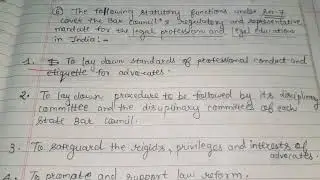 (b) The following statutory functions under Sec-7
cover the Bar Council's regulatory and representative
mandate for the legal profession and legal education
in India:-
1. To lay down standards of professional conduct and
etiquette for advocates.
2. To lay down procedure to be followed by its disciplinary
committee and the disciplinary committees of each
state Bar Council.
3. To safeguard the rights, privileges and interests of
advocates.
4. To promote and support law reform.